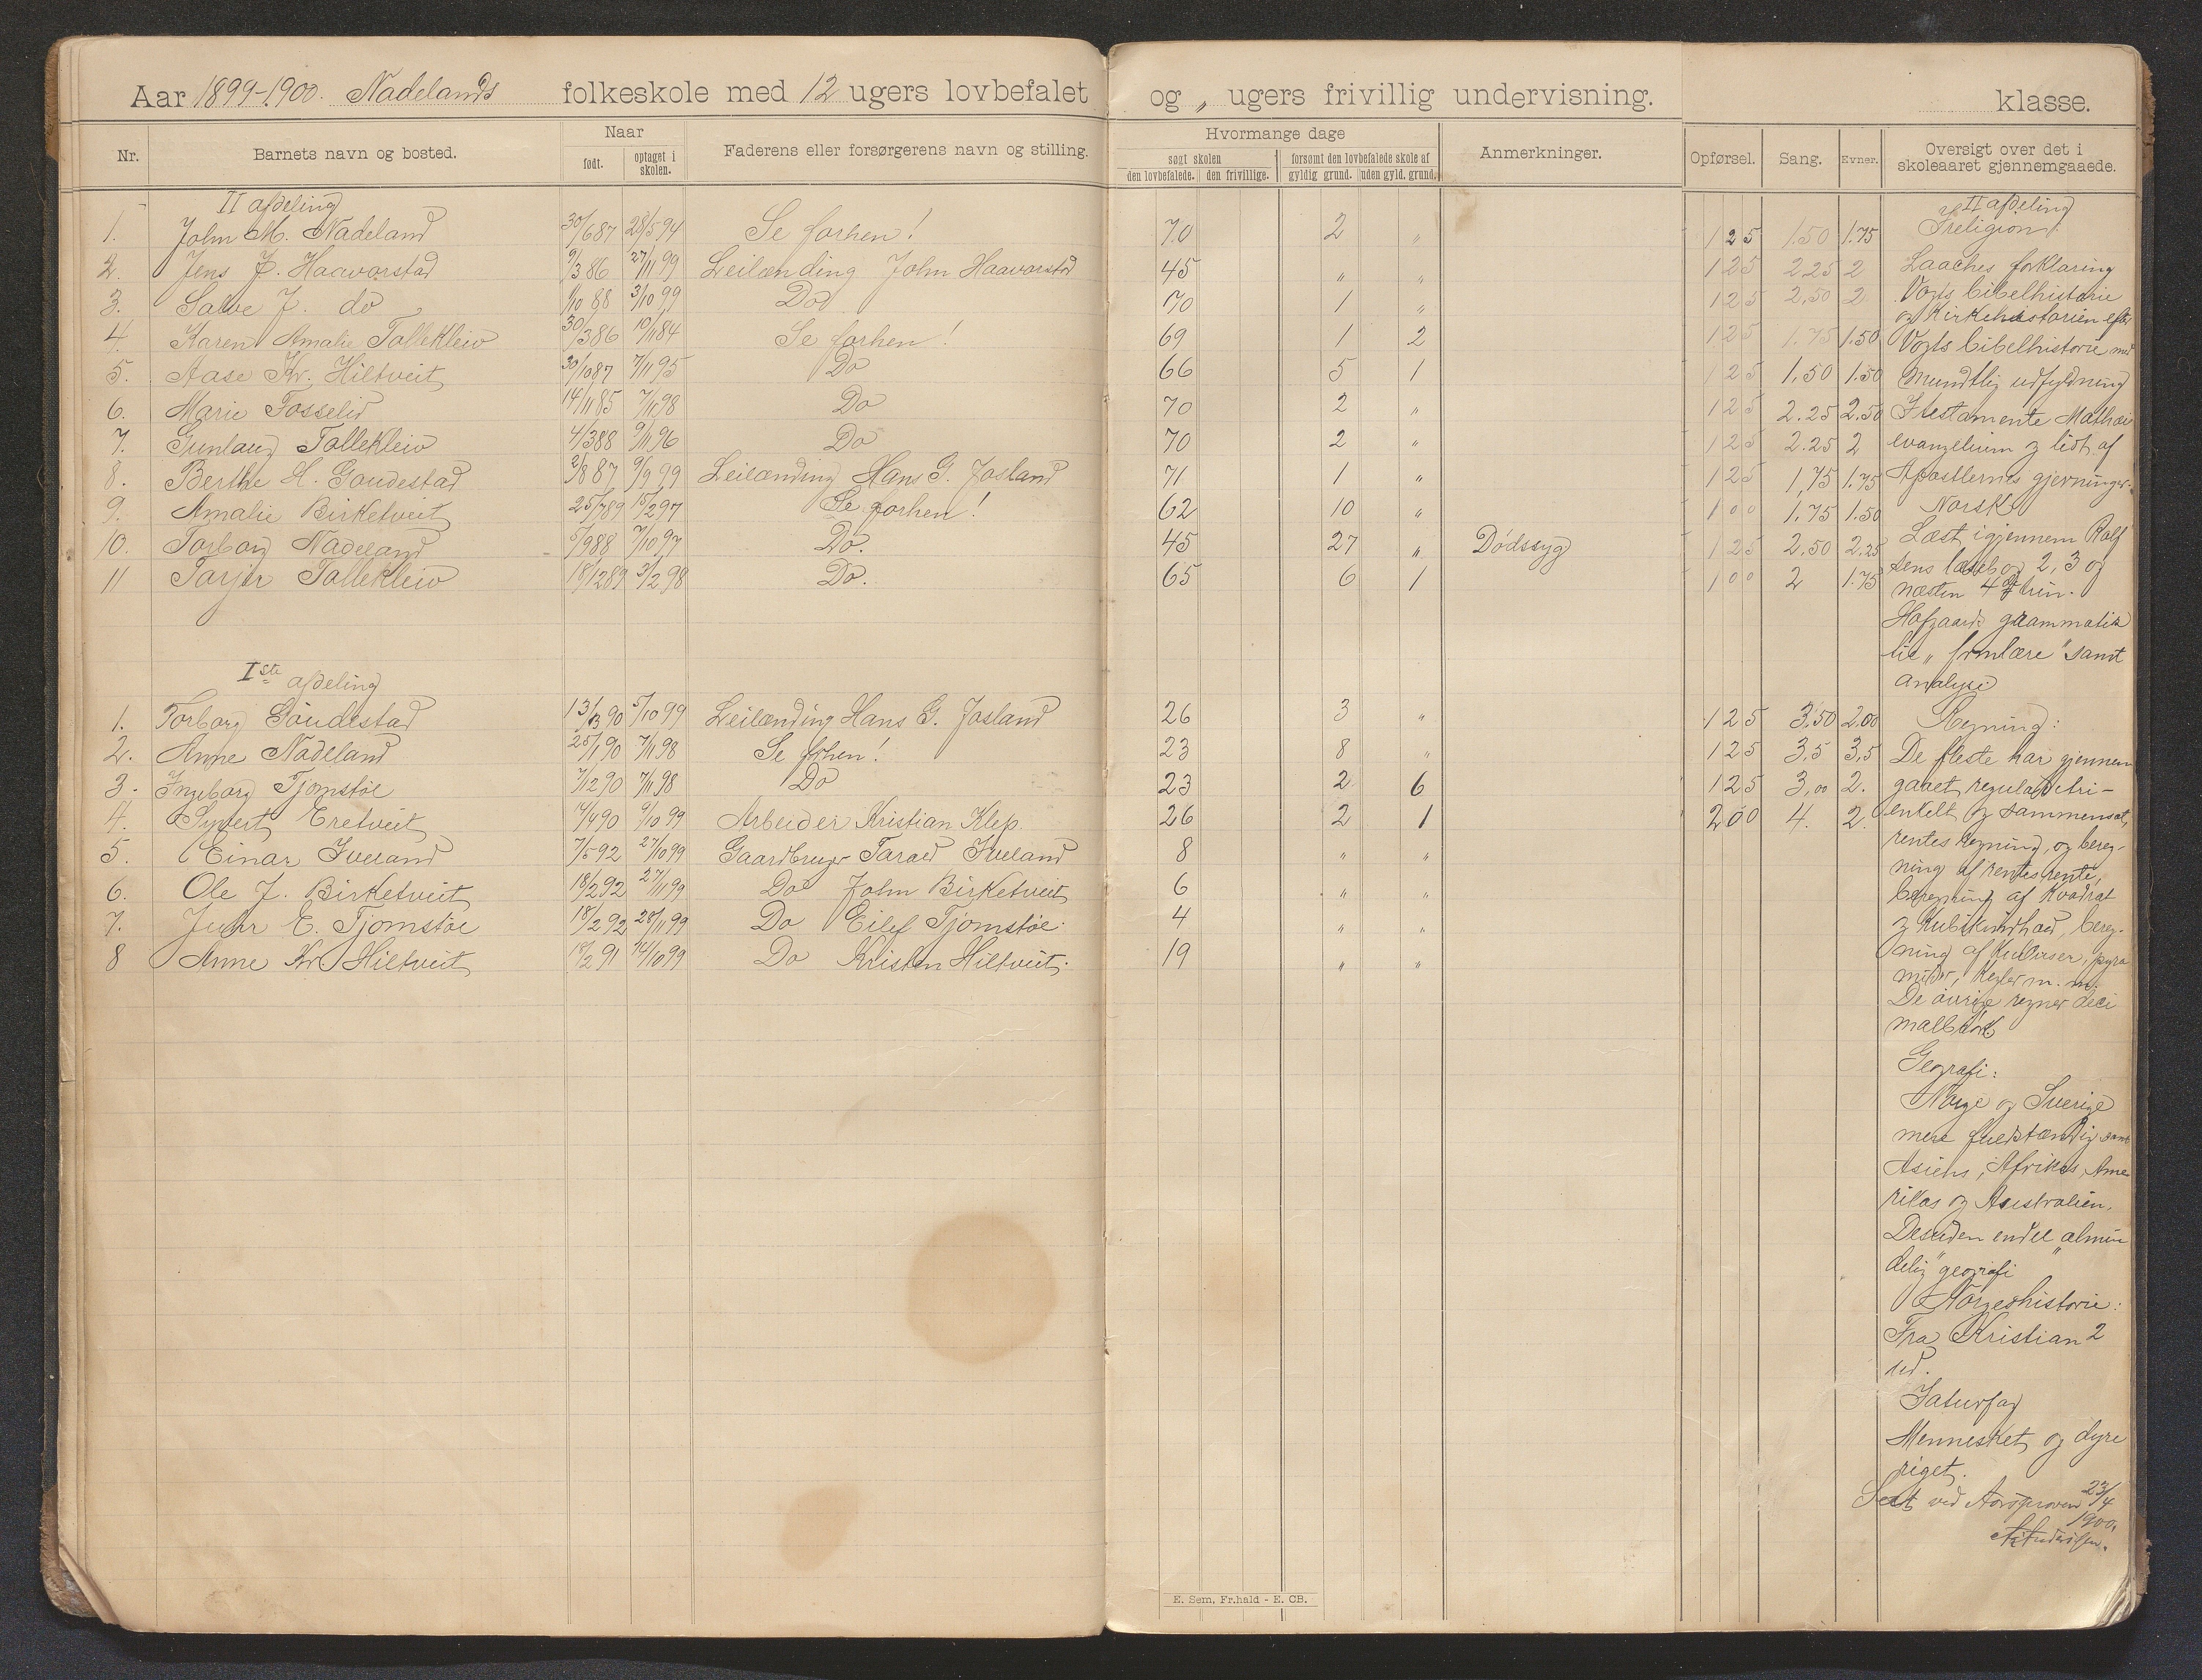 Aar 1899-1900. Nadelands folkeskole med 12 ugers lovbefalet og „ ugers frivillig undervisning. klasse.
Nr. Barnets navn og bosted. Naar født. optaget i skolen. Faderens eller forsørgerens navn og stilling. Hvormange dage søgt skolen den lovbefalede. den frivillige. forsømt den lovbefalede skole af gyldig grund. uden gyld. grund. Anmerkninger. Opførsel. Sang. Evner. Oversigt over det i skoleaaret gjennemgaaede.
II afdeling
1. John M. Nadeland 30/6 87 28/5 94 Se forhen! 70 2 „ 1 2 5 1.50 1.75
2. Jens J. Haavorstad 9/3 86 27/11 99 Leilænding John Haavorstad 45 „ „ 1 2 5 2.25 2
3. Salve J. do 1/10 88 3/10 99 Do 70 1 „ 1 2 5 2,50 2
4. Karen Amalie Tallekleiv 30/3 86 10/11 84 Se forhen! 69 1 2 1 2 5 1.75 1.50
5. Aase Kr. Hiltveit 30/10 87 7/11 95 Do 66 5 1 1 2 5 1,50 1.50
6. Marie Fosselid 14/11 85 7/11 98 Do 70 2 „ 1 2 5 2.25 2.50
7. Gunlaug Tallekleiv 4/3 88 9/11 96 Do 70 2 „ 1 2 5 2.25 2
8. Berthe H. Goudestad 2/8 87 9/9 99 Leilænding Hans G. Josland 71 1 „ 1 2 5 1,75 1.75
9. Amalie Birketveit 25/7 89 15/2 97 Se forhen! 62 10 „ 1 0 0 1,75 1.50
10. Torborg Nadeland 5/9 88 7/10 97 Do. 45 27 „ Dödssyg 1 2 5 2,50 2.25
11 Tarjer Tallekleiv 18/12 89 3/2 98 Do. 65 6 1 1 0 0 2 1.75
Iste afdeling
1. Torborg Goudestad 13/3 90 5/10 99 Leilænding Hans G. Josland 26 3 „ 1 2 5 3,50 2,00
2. Anne Nadeland 25/1 90 7/11 98 Se forhen! 23 8 „ 1 2 5 3,5 3,5
3. Ingeborg Tjomstøe 7/12 90 7/11 98 Do 23 2 6 1 2 5 3,00 2.
4. Syvert Eretveit 14/4 90 9/10 99 Arbeider Kristian Klep. 26 2 1 2 0 0 4. 2.
5. Einar Iveland 7/5 92 27/10 99 Gaardbruger Tarald Iveland 8 „ „
6. Ole J. Birketveit 18/2 92 27/11 99 Do John Birketveit 6 „ „
7. E. Tjomstøe 18/2 92 28/11 99 Do Eilef Tjomstøe. 4 „ „
8 Anne Kr. Hiltveit 18/2 91 14/10 99 Do Kristen Hiltveit. 19 „ „
II afdeling
Ireligion:
Laaches forklaring
Vogts bibelhistorie
og Kirkehistorien efter
Vogts bibelhistorie med
mundtlig udfyldning
I testamente Mathæi
evangelium og lidt af
Apostlernes gjerninger.
Norsk
Læst igjennem Rolf
sens læsebog 2, 3 og
næsten 4de trin.
Hofgaards grammatik
til „formlære" samt
analyse
Regning:
De fleste har gjennem
gaaet regula de tri-
enkelt og sammensat,
rentes regning, og bereg-
ning af rentes rente,
beregning af Kvadrat
og Kubikindhold, bereg-
ning af Kuber, pyra
mider, Kegler m. m.
De øvrige regner deci
malbrøk
Geografi:
Norge og Sverige
mere fuldstændig samt
Asiens, Afrikas, Ame
rikas og Australien.
Desuden endel "almin
delig" geografi
Norgeshistorie:
Fra Kristian 2
ud.
Inaturfag
Mennesket og dyre
riget.
Seet ved Aarsprøven 23/4
1900.
E. Sem, Fr.hald - E. CB.